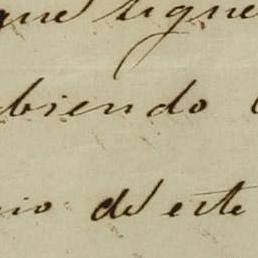 que sigue
biendo
io de este